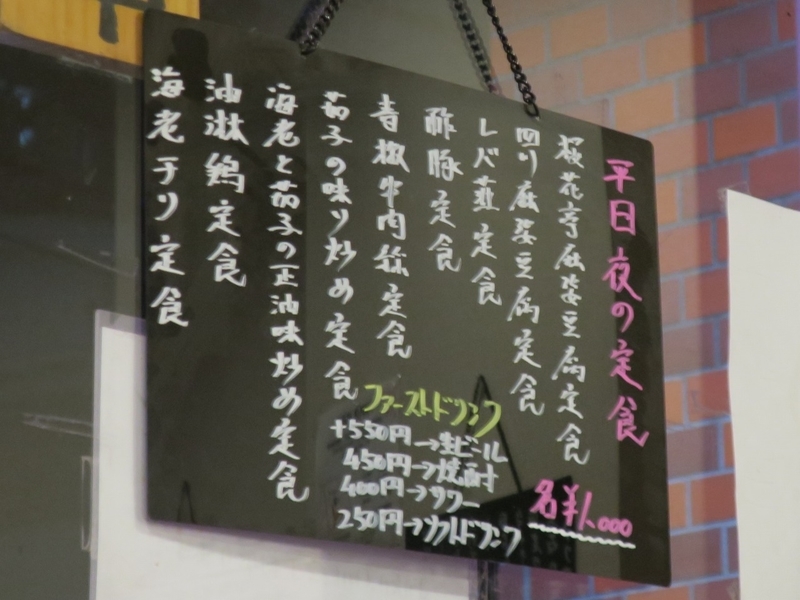 平日夜の定食
桜花亭麻婆豆腐定食
四川麻婆豆腐定食
レバ韮定食
酢豚定食
青椒牛肉絲定食
茄子の味噌炒め定食
海老と茄子の正油味炒め定食
油淋鶏定食
海老チリ定食
各¥1,000
ファーストドリンク
+550円→生ビール
450円→焼酎
400円→サワー
250円→ソフトドリンク